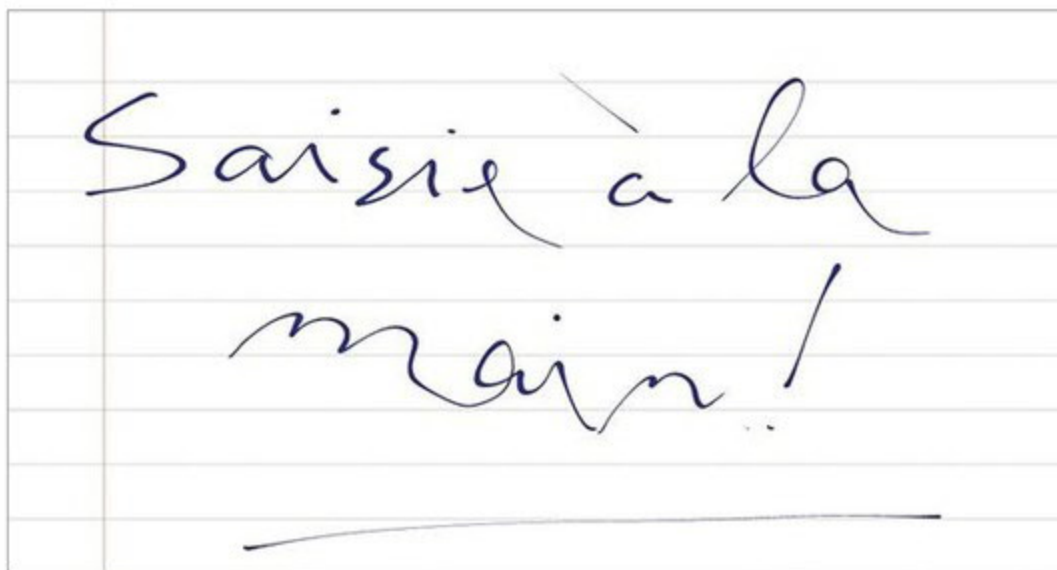 Saisie à la
main !